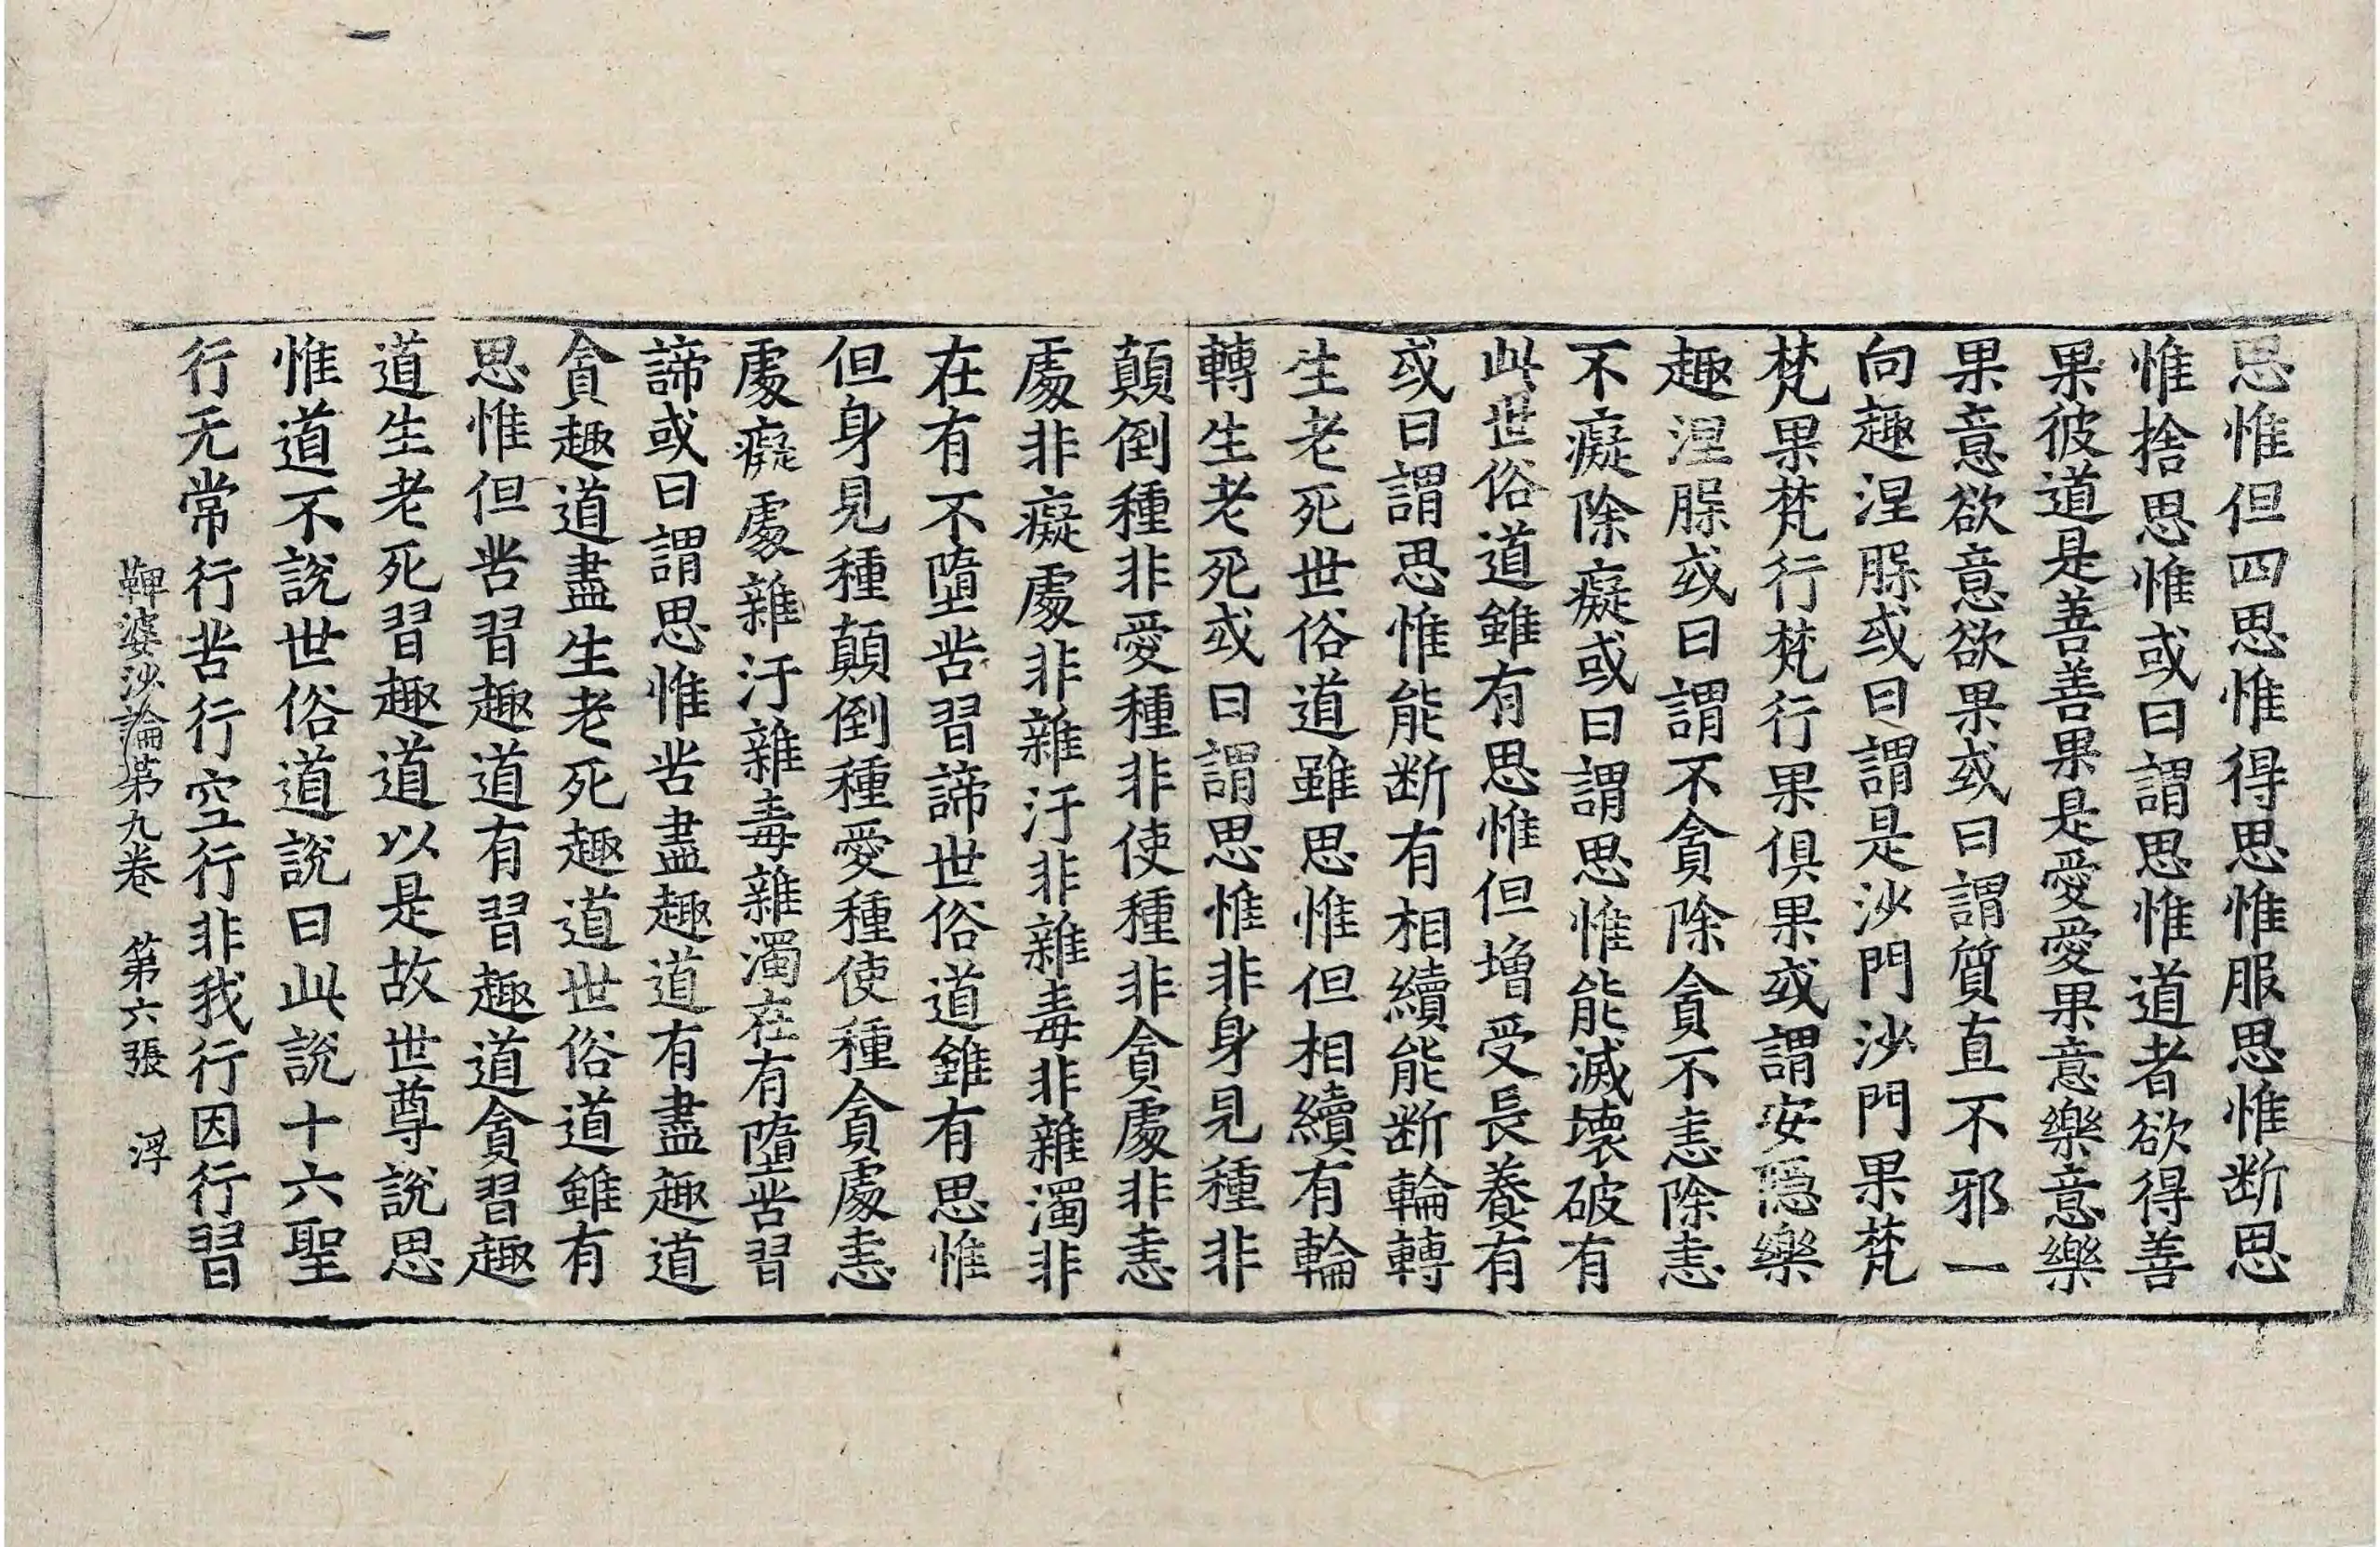 思惟但四思惟得思惟服思惟断思
惟捨思惟或曰謂思惟道者欲得善
果彼道是善善果是愛愛果意樂意樂
果意欲意欲果或曰謂質直不邪一
向趣涅槃或曰謂是沙門沙門果梵
梵果梵行梵行果俱果或謂安隱樂
趣涅槃或曰謂不貪除貪不恚除恚
不癡除癡或曰謂思惟能滅壞破有
此世俗道雖有思惟但增受長養有
或曰謂思惟能断有相續能断輪轉
生老死世俗道雖思惟但相續有輪
轉生老死或曰謂思惟非身見種非
顛倒種非愛種非使種非貪處非恚
處非癡處非雜汙非雜毒非雜濁非
在有不墮苦習諦世俗道雖有思惟
但身見種顛倒種愛種使種貪處恚
處癡處雜汙雜毒雜濁在有墮苦習
諦或曰謂思惟苦盡趣道有盡趣道
貪趣道盡生老死趣道世俗道雖有
思惟但苦習趣道有習趣道貪習趣
道生老死習趣道以是故世尊說思
惟道不說世俗道說曰此說十六聖
行无常行苦行空行非我行因行習
鞞婆沙論第九卷　第六張　浮